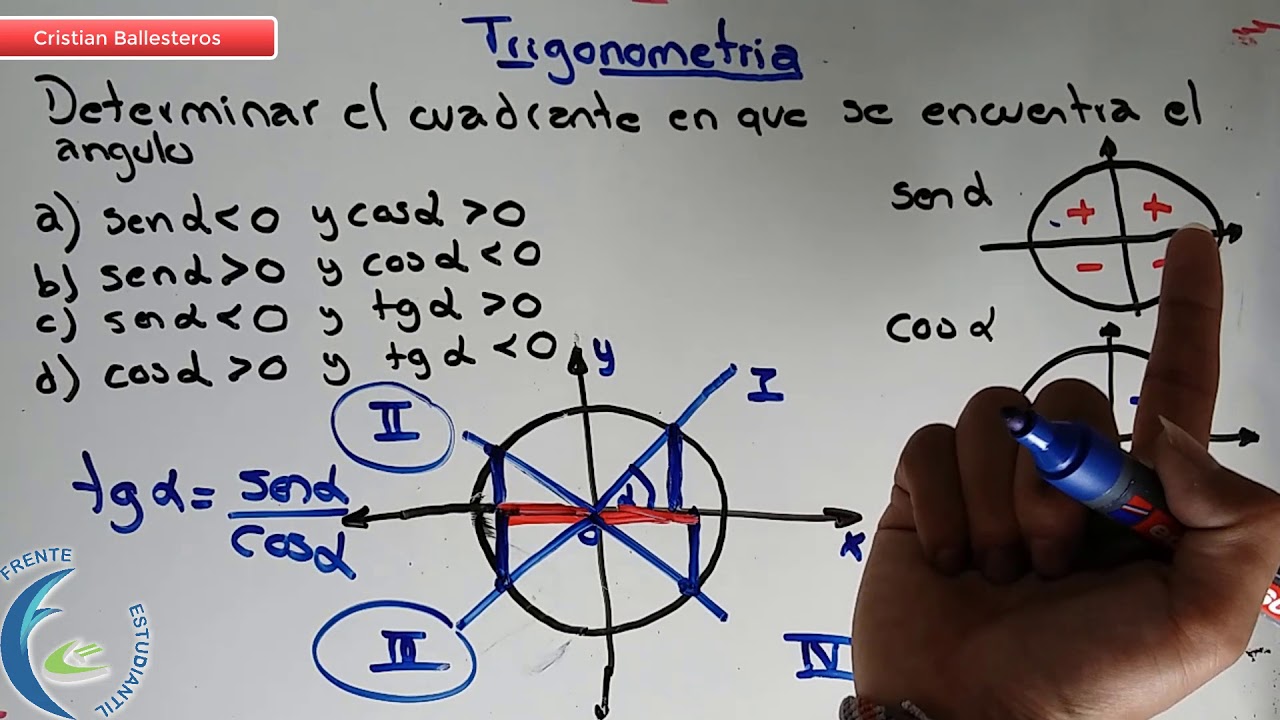 Cristian Ballesteros
Trigonometria
Determinar el cuadrante en que se encuentra el
angulo
a) sen α < 0 y cos α > 0
b) sen α > 0 y cos α < 0
c) sen α < 0 y tg α > 0
d) cos α > 0 y tg α < 0
sen α
+ +
- -
cos α
-
y
I
II
tg α = sen α
cos α
α
o
x
III
IV
FRENTE
ESTUDIANTIL